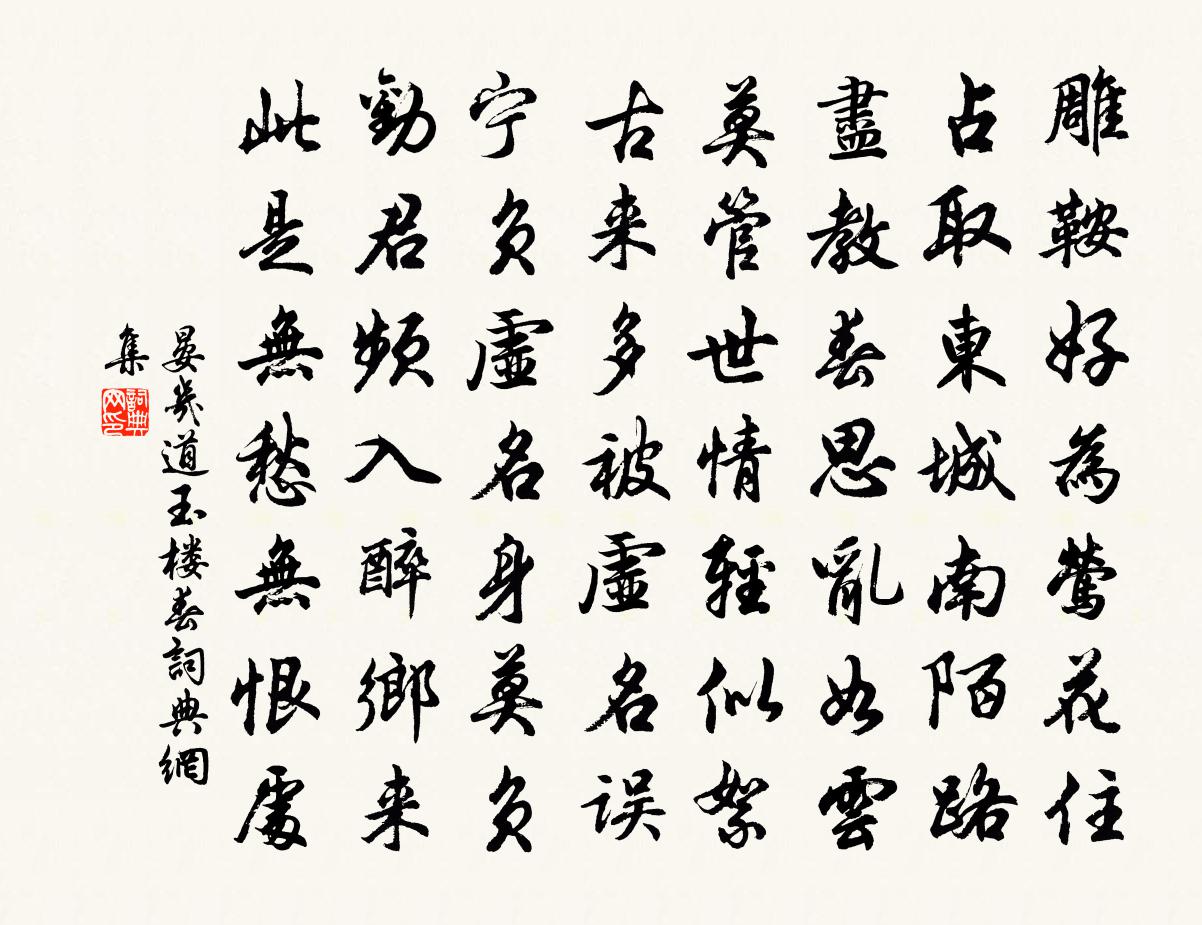 雕鞍好為鶯花住
占取東城南陌路
盡教春思亂如雲
莫管世情輕似絮
古来多被虛名误
宁负虛名身莫负
勸君频入醉鄉来
此是無愁無恨處
晏幾道玉楼春詞典網
集
詞典网印